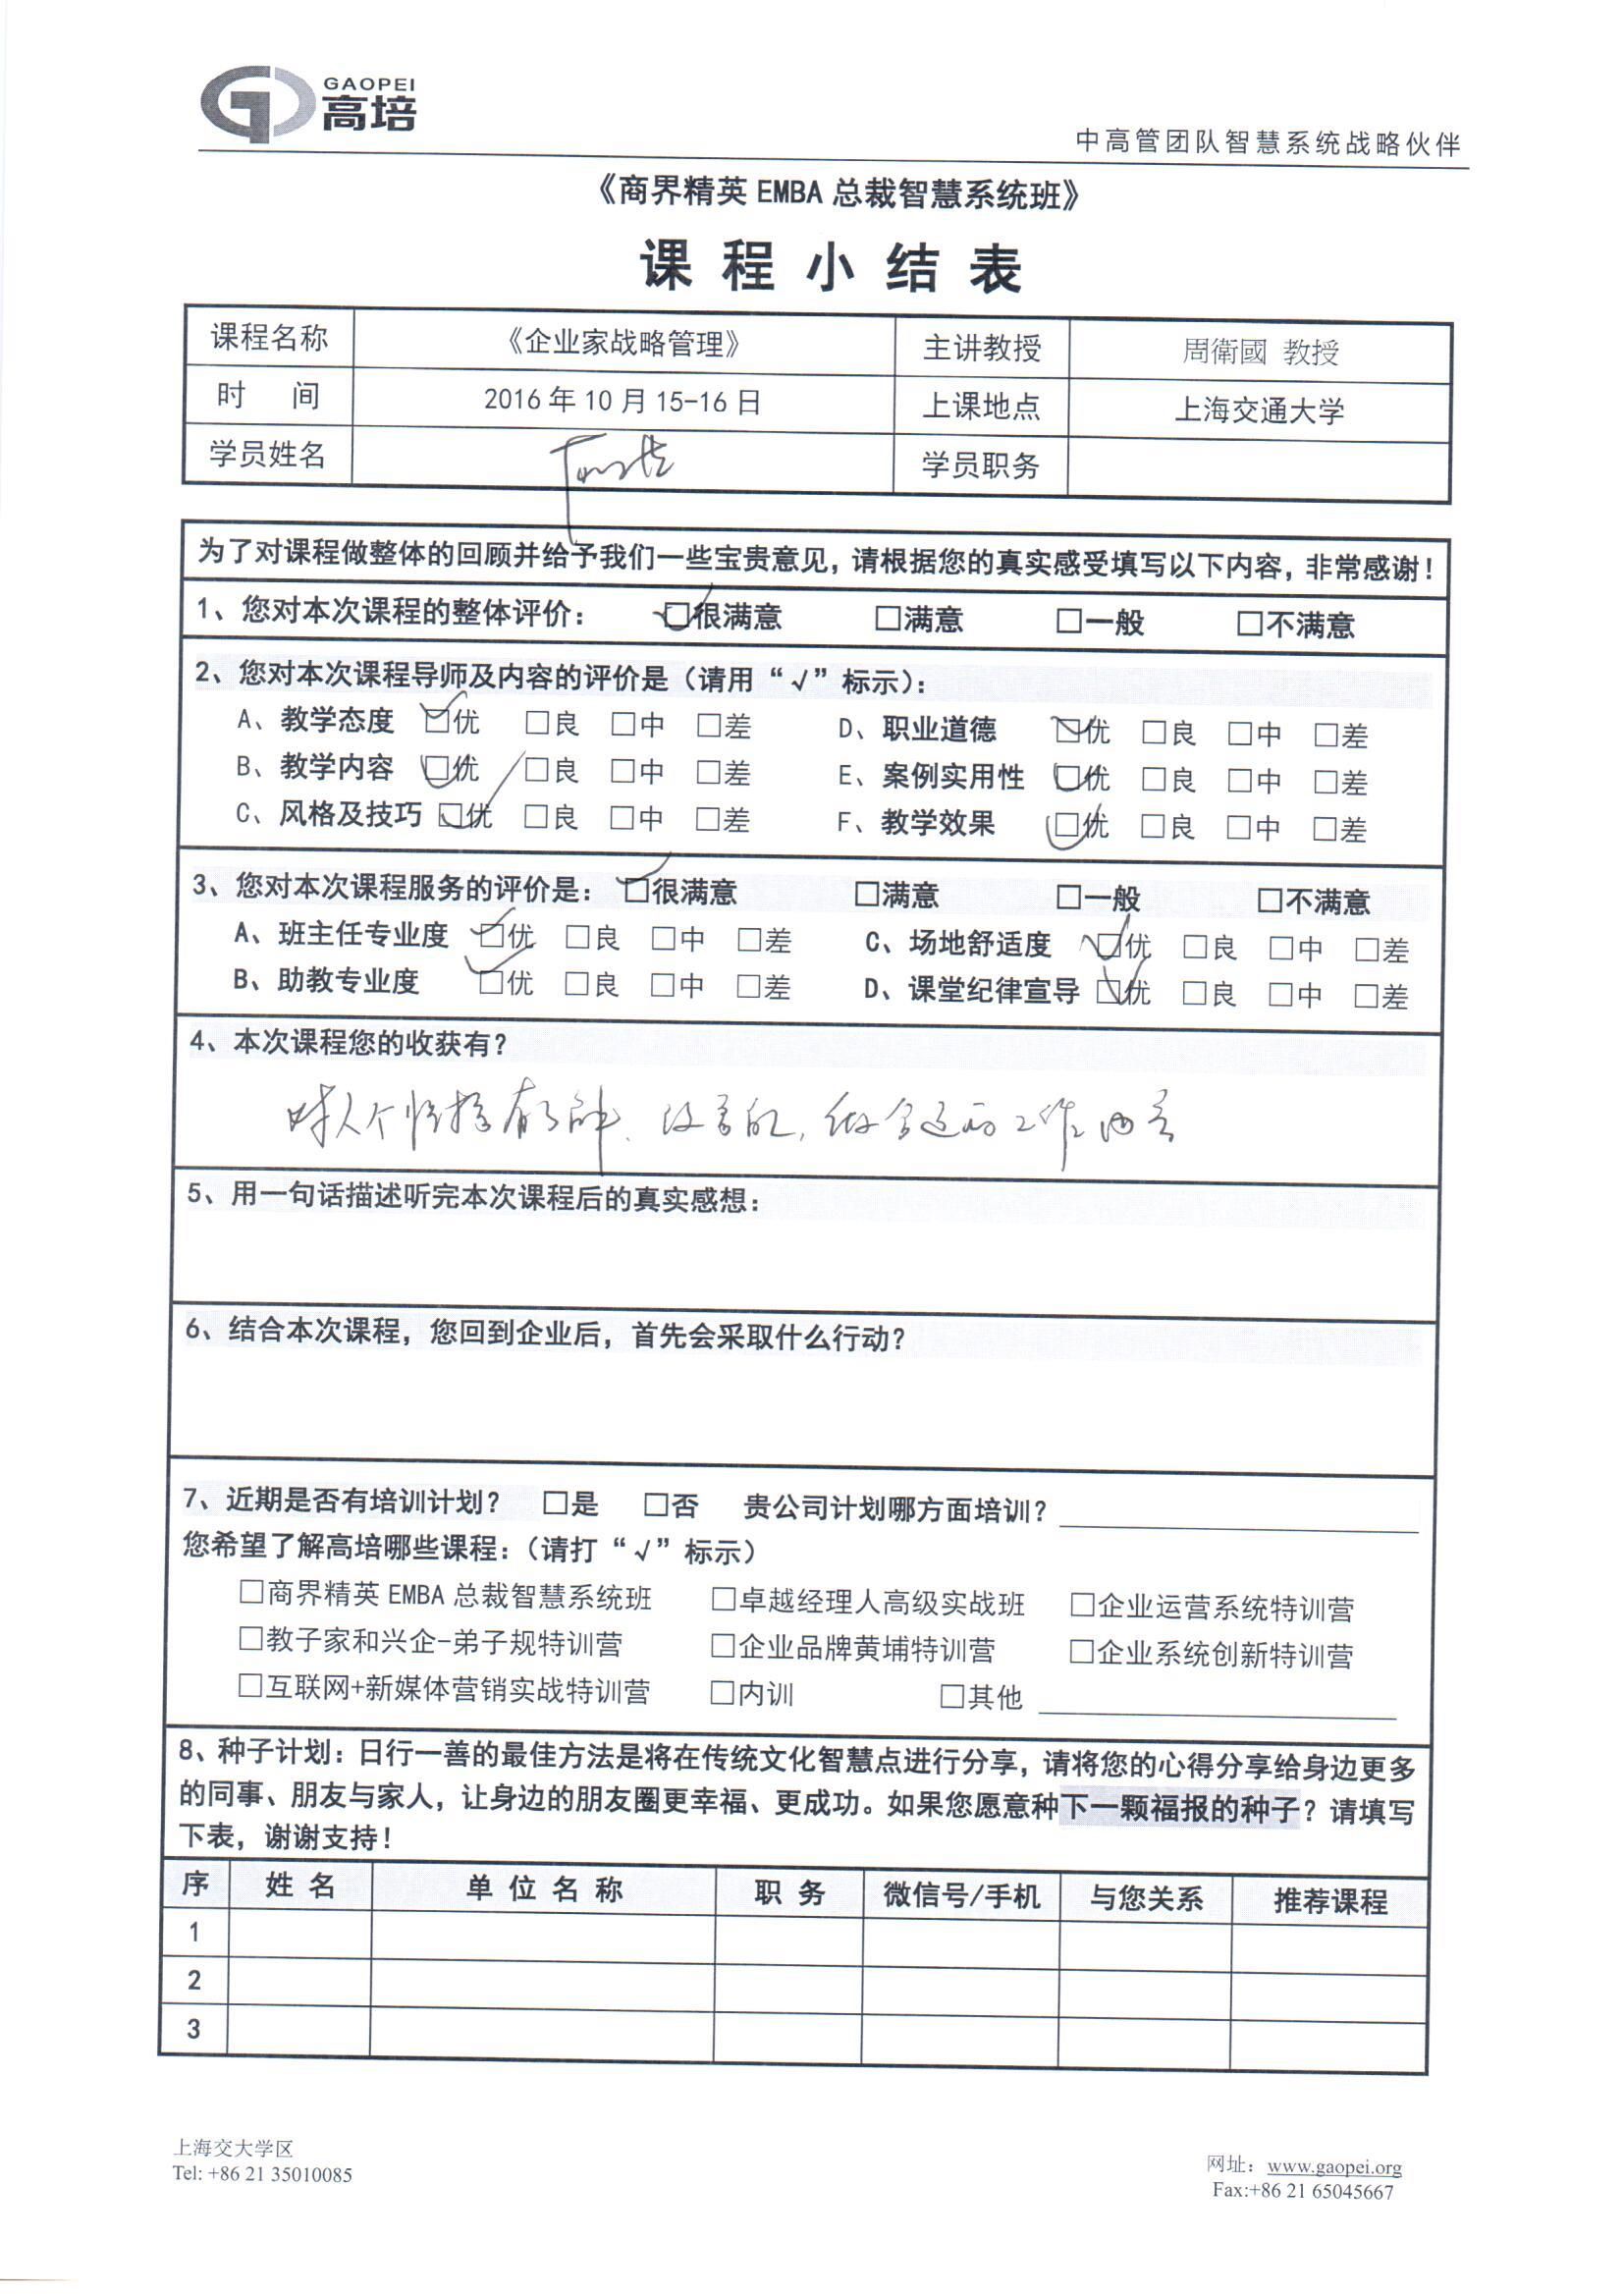 GAOPEI
高培
中高管团队智慧系统战略伙伴
《商界精英 EMBA 总裁智慧系统班》
课 程 小 结 表
课程名称 《企业家战略管理》 主讲教授 周衛國 教授
时 间 2016 年 10 月 15-16 日 上课地点 上海交通大学
学员姓名 学员职务
为了对课程做整体的回顾并给予我们一些宝贵意见，请根据您的真实感受填写以下内容，非常感谢！
1、您对本次课程的整体评价： ☑很满意 □满意 □一般 □不满意
2、您对本次课程导师及内容的评价是（请用“√”标示）：
A、教学态度 ☑优 □良 □中 □差 D、职业道德 ☑优 □良 □中 □差
B、教学内容 ☑优 □良 □中 □差 E、案例实用性 ☑优 □良 □中 □差
C、风格及技巧 ☑优 □良 □中 □差 F、教学效果 ☑优 □良 □中 □差
3、您对本次课程服务的评价是： ☑很满意 □满意 □一般 □不满意
A、班主任专业度 ☑优 □良 □中 □差 C、场地舒适度 ☑优 □良 □中 □差
B、助教专业度 ☑优 □良 □中 □差 D、课堂纪律宣导 ☑优 □良 □中 □差
4、本次课程您的收获有？
对人个性格有了
工作内容
5、用一句话描述听完本次课程后的真实感想：
6、结合本次课程，您回到企业后，首先会采取什么行动？
7、近期是否有培训计划？ □是 □否 贵公司计划哪方面培训？
您希望了解高培哪些课程：（请打“√”标示）
□商界精英 EMBA 总裁智慧系统班 □卓越经理人高级实战班 □企业运营系统特训营
□教子家和兴企-弟子规特训营 □企业品牌黄埔特训营 □企业系统创新特训营
□互联网+新媒体营销实战特训营 □内训 □其他
8、种子计划：日行一善的最佳方法是将在传统文化智慧点进行分享，请将您的心得分享给身边更多
的同事、朋友与家人，让身边的朋友圈更幸福、更成功。如果您愿意种下一颗福报的种子？请填写
下表，谢谢支持！
序 姓 名 单 位 名 称 职 务 微信号/手机 与您关系 推荐课程
1
2
3
上海交大学区
Tel: +86 21 35010085
网址：www.gaopei.org
Fax:+86 21 65045667